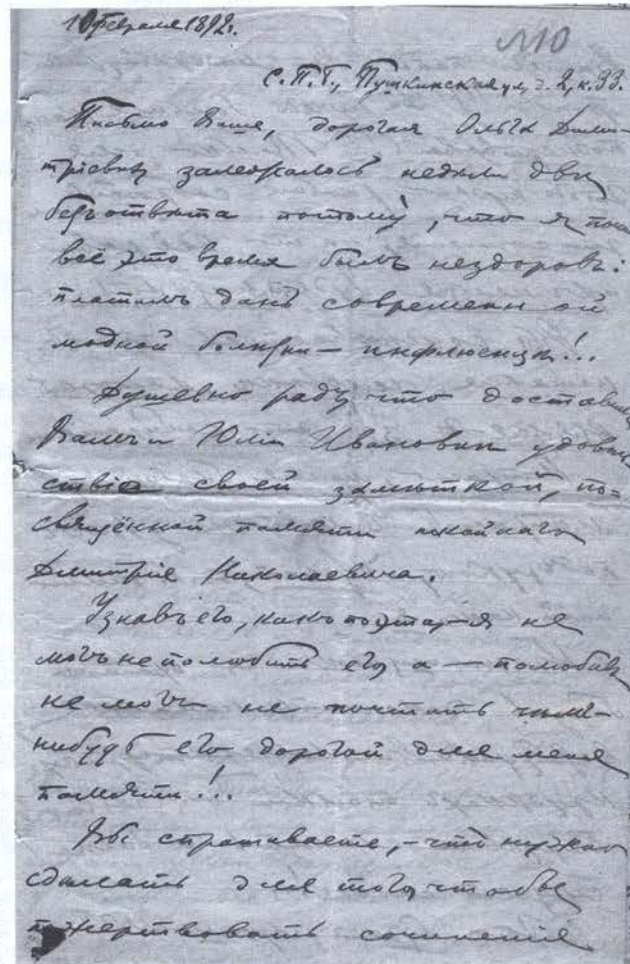 10 Февраля 1892.
№10
С.П.Б., Пушкинская ул, д. 2, к. 33.
Письмо Ваше, дорогая Ольга Дими-
тріевна залежалось недѣли двѣ
безъ отвѣта потому, что я почти
всё это время былъ нездоровъ:
платилъ дань современной
модной болѣзни — инфлюенцѣ!..
Душевно радъ, что доставилъ
Вамъ и Юліи Ивановнѣ удоволь
ствіе своей замѣткой, по-
свящённой памяти покойнаго
Дмитрія Николаевича.
Узнавъ его, какъ поэта, — я не
могъ не полюбить его, а — полюбивъ
не могъ не почтить чѣмъ-
нибудь его дорогой для меня
памяти!..
Вы спрашиваете, — что нужно
сдѣлать для того, чтобы
пожертвовать сочиненія